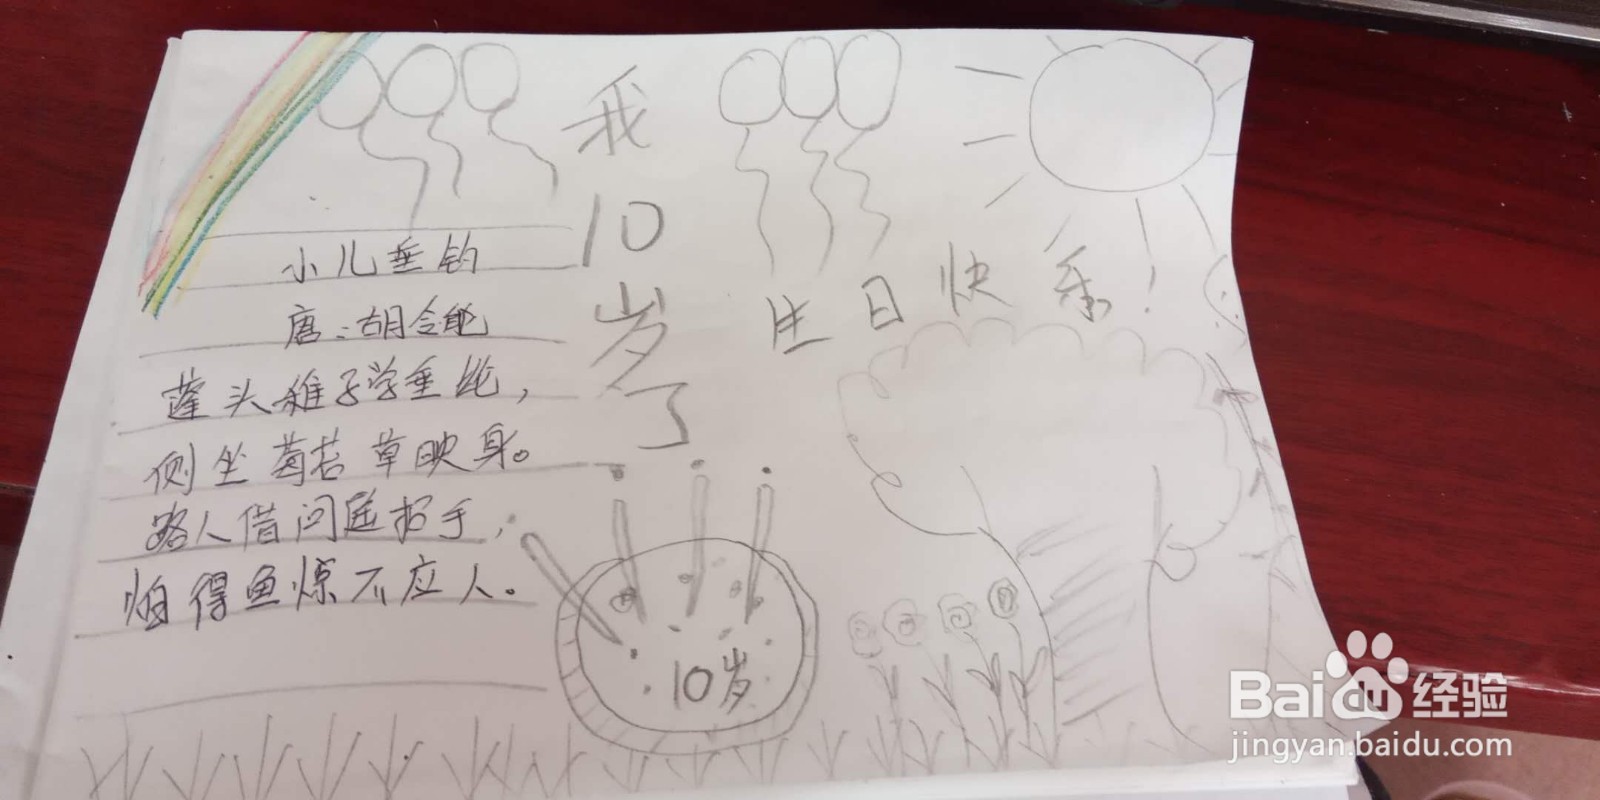 我10岁了
生日快乐!
小儿垂钓
唐:胡令能
蓬头稚子学垂纶,
侧坐莓苔草映身。
路人借问遥招手,
怕得鱼惊不应人。
10岁
Baidu经验
jingyan.baidu.com